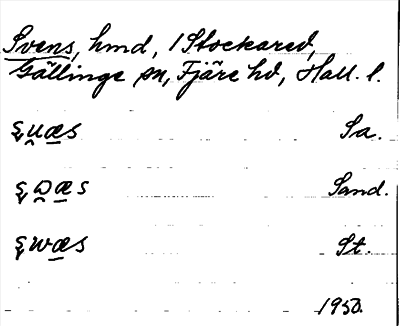 Svens, hmd, 1 Stockared,
Gällinge sn, Fjäre hd, Hall. l.
s̬u̯æ̠s Sa.
s̬ω̯æ̠s Sand.
s̬wæ̠s St.
1950.